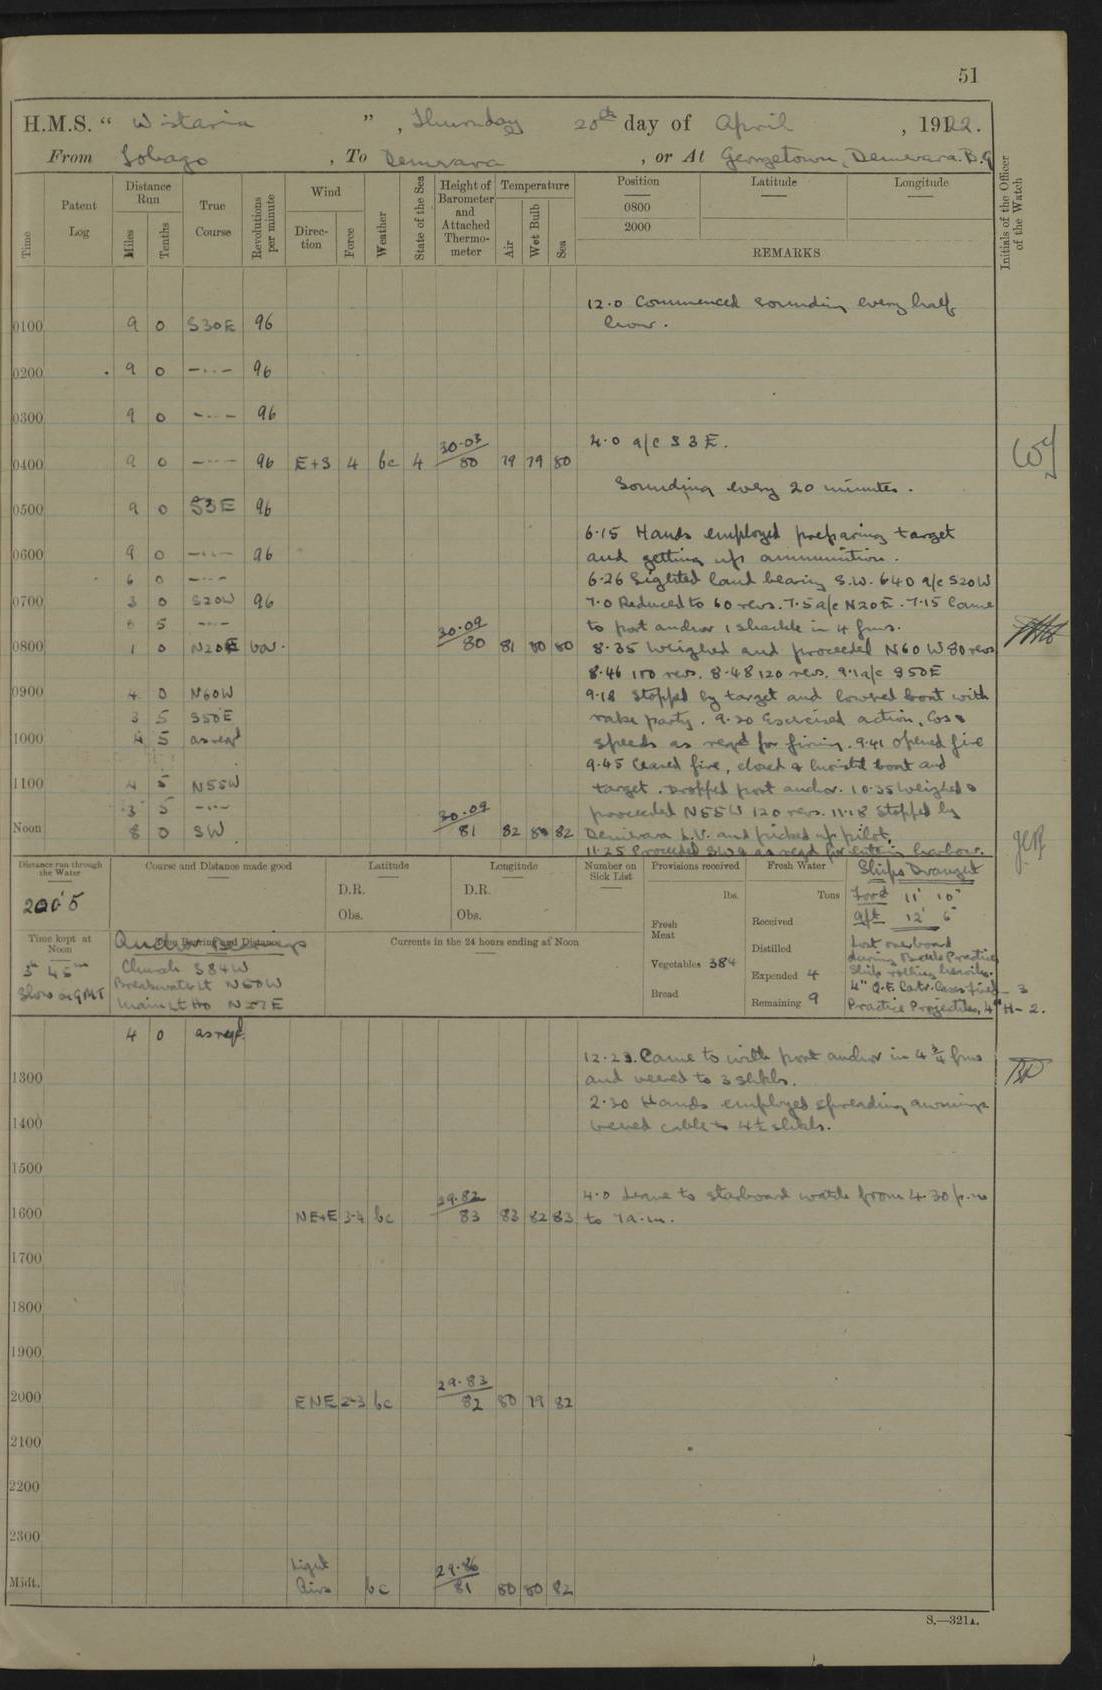 51
H.M.S. “ Wistaria ” , Thursday 20th day of April , 1922.
From Tobago , To Demerara , or At Georgetown, Demerara. B.G
Time
Patent Log
Distance Run
Miles
Tenths
True Course
Revolutions per minute
Wind
Direction
Force
Weather
State of the Sea
Height of Barometer and Attached Thermometer
Temperature
Air
Wet Bulb
Sea
Position Latitude Longitude
0800
2000
REMARKS
Initials of the Officer of the Watch
12.0 Commenced sounding every half
hour.
0100 9 0 S30E 96
0200 9 0 -..- 96
0300 9 0 -..- 96
4.0 a/c S 3 E.
30.03
0400 9 0 -..- 96 E+S 4 bc 4 80 79 79 80
Sounding every 20 minutes.
0500 9 0 S3E 96
6.15 Hands employed preparing target
0600 9 0 -..- 96 and getting up ammunition.
6 0 -..- 6.26 Sighted land bearing S.W. 6.40 a/c S20W
0700 3 0 S20W 96 7.0 Reduced to 60 revs. 7.5 a/c N20E. 7.15 Came
5 -..- to port anchor 1 shackle in 4 fms.
30.09
0800 1 0 N20E var. 80 81 80 80 8.35 Weighed and proceeded N60W 80 revs
8.46 100 revs. 8.48 120 revs. 9.1 a/c S50E
0900 4 0 N60W 9.18 Stopped by target and lowered boat with
3 5 S50E rake party. 9.30 Exercised action, Cos &
1000 4 5 as reqd speeds as reqd for firing. 9.41 opened fire
9.45 Ceased fire, closed & hoisted boat and
1100 4 5 N55W target. Dropped port anchor. 10.35 Weighed &
3 5 -..- proceeded N55W 120 revs. 11.18 Stopped by
30.09
Noon 8 0 SW 81 82 80 82 Demerara L.V. and picked up pilot.
11.25 Proceeded SW & as reqd for entering harbour.
Distance run through the Water
200.5
Course and Distance made good
Latitude
D.R.
Obs.
Longitude
D.R.
Obs.
Number on Sick List
Provisions received
lbs.
Fresh Meat
Vegetables 384
Bread
Fresh Water
Tons
Received
Distilled
Expended 4
Remaining 9
Ships Draught
Ford 11' 10"
Aft 12' 6"
Lost overboard
during Battle Practice
Ship rolling heavily.
4" Q.F. Catr. Cases fired - 3
Practice Projectiles, 4" H - 2.
Time kept at Noon
3h 45m
Slow on GMT
Anchor Bearings
Church S84W
Breakwater Lt N50W
Main Lt Ho N57E
Currents in the 24 hours ending at Noon
4 0 as reqd.
12.23. Came to with port anchor in 4 3/4 fms
1300 and veered to 3 shkls.
2.30 Hands employed spreading awnings
1400 veered cable to 4½ shkls.
1500
29.82 4.0 Leave to starboard watch from 4.30 p.m
1600 NE+E 3-4 bc 83 83 82 83 to 7 a.m.
1700
1800
1900
29.83
2000 ENE 2-3 bc 82 80 79 82
2100
2200
2300
29.86
Midt. Light Airs bc 81 80 80 82
S.—321A.